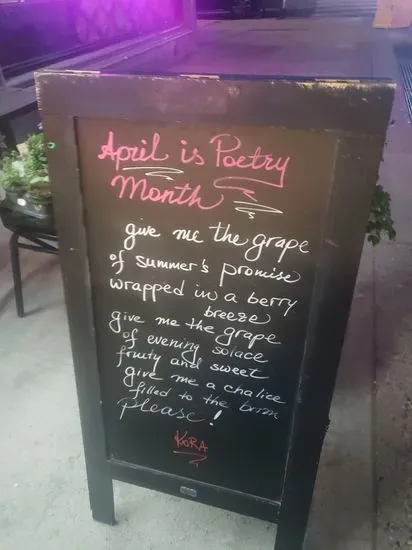 April is Poetry
Month
give me the grape
of summer's promise
wrapped in a berry
breeze
give me the grape
of evening solace
fruity and sweet
give me a chalice
filled to the brim
please!
KORA